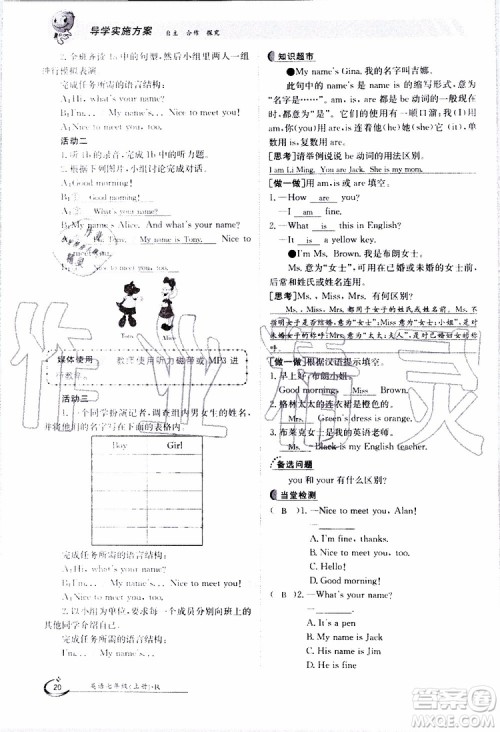 导学实施方案 自主 合作 探究
2.全班齐读1b中的句型,然后小组里两人一组
进行模拟表演
完成任务所需的语言结构:
A:Hi! What's your name?
B:I'm... My name's... Nice to meet you!
A:Nice to meet you, too.
活动二
1.听录音,完成1b中的听力题。
2.根据下列图片,小组讨论完成对话。
A:Good morning!
B: Good morning!
A: What's your name?
B:My name's Alice. And what's your name?
A: My name is Tony. Nice to
B:Nice to meet you, too!
Tom Alice
媒体使用 教师使用听力磁带或MP3进
行教学。
活动三
1.一个同学扮演记者,调查组内男女生的姓名,
并将其填写在上面的表格内:
Boy Girl
完成任务所需的语言结构:
A:Hi! What's your name?
B:I'm... My name's... Nice to meet you!
A:Nice to meet you, too.
2.以小组为单位,要求每一个成员分别向班上的
其他同学介绍自己的姓名。
完成任务所需的语言结构:
A:Hi! I'm... My name's...
20 英语七年级(上册)·R
知识超市
●My name's Gina. 我的名字叫吉娜。
My name's是my name is的缩写形式,意为
“名字是……”。am, is, are是be动词的一般现在
时的几种形式。它们的用法有一顺口溜:I用am,
you用are, is用于he(他)she(她)it(它)。单数用
is,复数用are。
[思考]请举例说说be动词的用法区别。
I am Li Ming. You are Jack. She is my mom.
[做一做]用am, is, are填空。
1.—How are you?
—I am fine.
2.—What is this in English?
—It is a yellow key.
●I'm Ms. Brown. 我是布朗女士。
Ms. 意为“女士”,可用在已婚或未婚的女士前,
后加女士的姓。
[思考]Ms., Miss, Mrs. 有何区别?
Ms., Miss, Mrs. 都用于女子的姓氏前。Ms. 不
强调女子是否结婚,意为“女士”;Miss意为“女士;小姐”,是对
未婚女子的称呼;Mrs. 意为“太太;夫人”,是对已婚女子的称呼。
[做一做]根据汉语提示填空。
1.早上好,布朗小姐。
Good morning, Miss Brown.
2.格林太太的连衣裙是橙色的。
Mrs. Green's dress is orange.
3.布莱克女士是我的英语老师。
Ms. Black is my English teacher.
备选问题
you和your有什么区别?
当堂检测
( B )1.—Nice to meet you, Alan!
—
A. I'm fine, thanks.
B. Nice to meet you, too.
C. Hello!
D. Good morning!
( B )2.—What's your name?
—
A. It's a pen
B. My name is Jack
C. I'm fine
D. His name is Jim
作业精灵